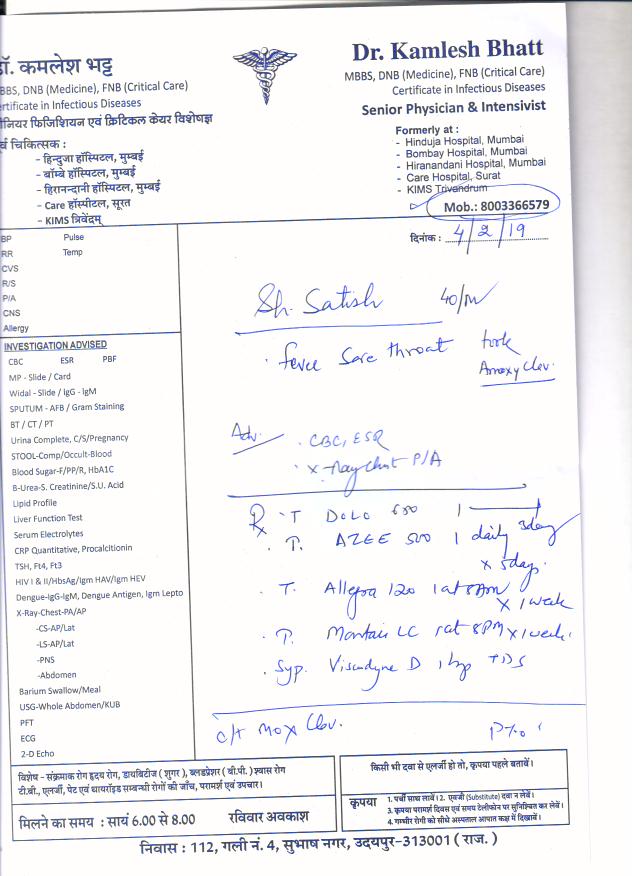 डॉ. कमलेश भट्ट
BBS, DNB (Medicine), FNB (Critical Care)
ertificate in Infectious Diseases
नियर फिजिशियन एवं क्रिटिकल केयर विशेषज्ञ
र्व चिकित्सक :
- हिन्दुजा हॉस्पिटल, मुम्बई
- बॉम्बे हॉस्पिटल, मुम्बई
- हिरानन्दानी हॉस्पिटल, मुम्बई
- Care हॉस्पीटल, सूरत
- KIMS त्रिवेंद्रम्
Dr. Kamlesh Bhatt
MBBS, DNB (Medicine), FNB (Critical Care)
Certificate in Infectious Diseases
Senior Physician & Intensivist
Formerly at :
- Hinduja Hospital, Mumbai
- Bombay Hospital, Mumbai
- Hiranandani Hospital, Mumbai
- Care Hospital, Surat
- KIMS Trivandrum
Mob.: 8003366579
दिनांक : 4/2/19
BP Pulse
RR Temp
CVS
R/S
P/A
CNS
Allergy
INVESTIGATION ADVISED
CBC ESR PBF
MP - Slide / Card
Widal - Slide / IgG - IgM
SPUTUM - AFB / Gram Staining
BT / CT / PT
Urina Complete, C/S/Pregnancy
STOOL-Comp/Occult-Blood
Blood Sugar-F/PP/R, HbA1C
B-Urea-S. Creatinine/S.U. Acid
Lipid Profile
Liver Function Test
Serum Electrolytes
CRP Quantitative, Procalcitonin
TSH, Ft4, Ft3
HIV I & II/HbsAg/Igm HAV/Igm HEV
Dengue-IgG-IgM, Dengue Antigen, Igm Lepto
X-Ray-Chest-PA/AP
-CS-AP/Lat
-LS-AP/Lat
-PNS
-Abdomen
Barium Swallow/Meal
USG-Whole Abdomen/KUB
PFT
ECG
2-D Echo
Sh. Satish 40/M
. fever Sore throat took
Amoxy Clav.
Adv. . CBC, ESR
. X-Ray Chest P/A
Rx . T DOLO 650 1
3day
. T. AZEE 500 1 daily
x 5days.
. T. Allegra 120 1 at 8AM
x 1 week
. T. Montair LC 1 at 8PM x 1 week.
. Syp. Viscodyne D TDS
c/t Mox Clav.
P.T.O
विशेष - संक्रामक रोग हृदय रोग, डायबिटीज ( शुगर ), ब्लडप्रेशर ( बी.पी. ) श्वास रोग
टी.बी., एलर्जी, पेट एवं थायरॉइड सम्बन्धी रोगों की जाँच, परामर्श एवं उपचार।
मिलने का समय : सायं 6.00 से 8.00 रविवार अवकाश
किसी भी दवा से एलर्जी हो तो, कृपया पहले बतावें।
कृपया
1. पर्ची साथ लावें। 2. एवजी (Substitute) दवा न लेवें।
3. कृपया परामर्श दिवस एवं समय टेलीफोन पर सुनिश्चित कर लेवें।
4. गम्भीर रोगी को सीधे अस्पताल आपात कक्ष में दिखावें।
निवास : 112, गली नं. 4, सुभाष नगर, उदयपुर-313001 ( राज. )